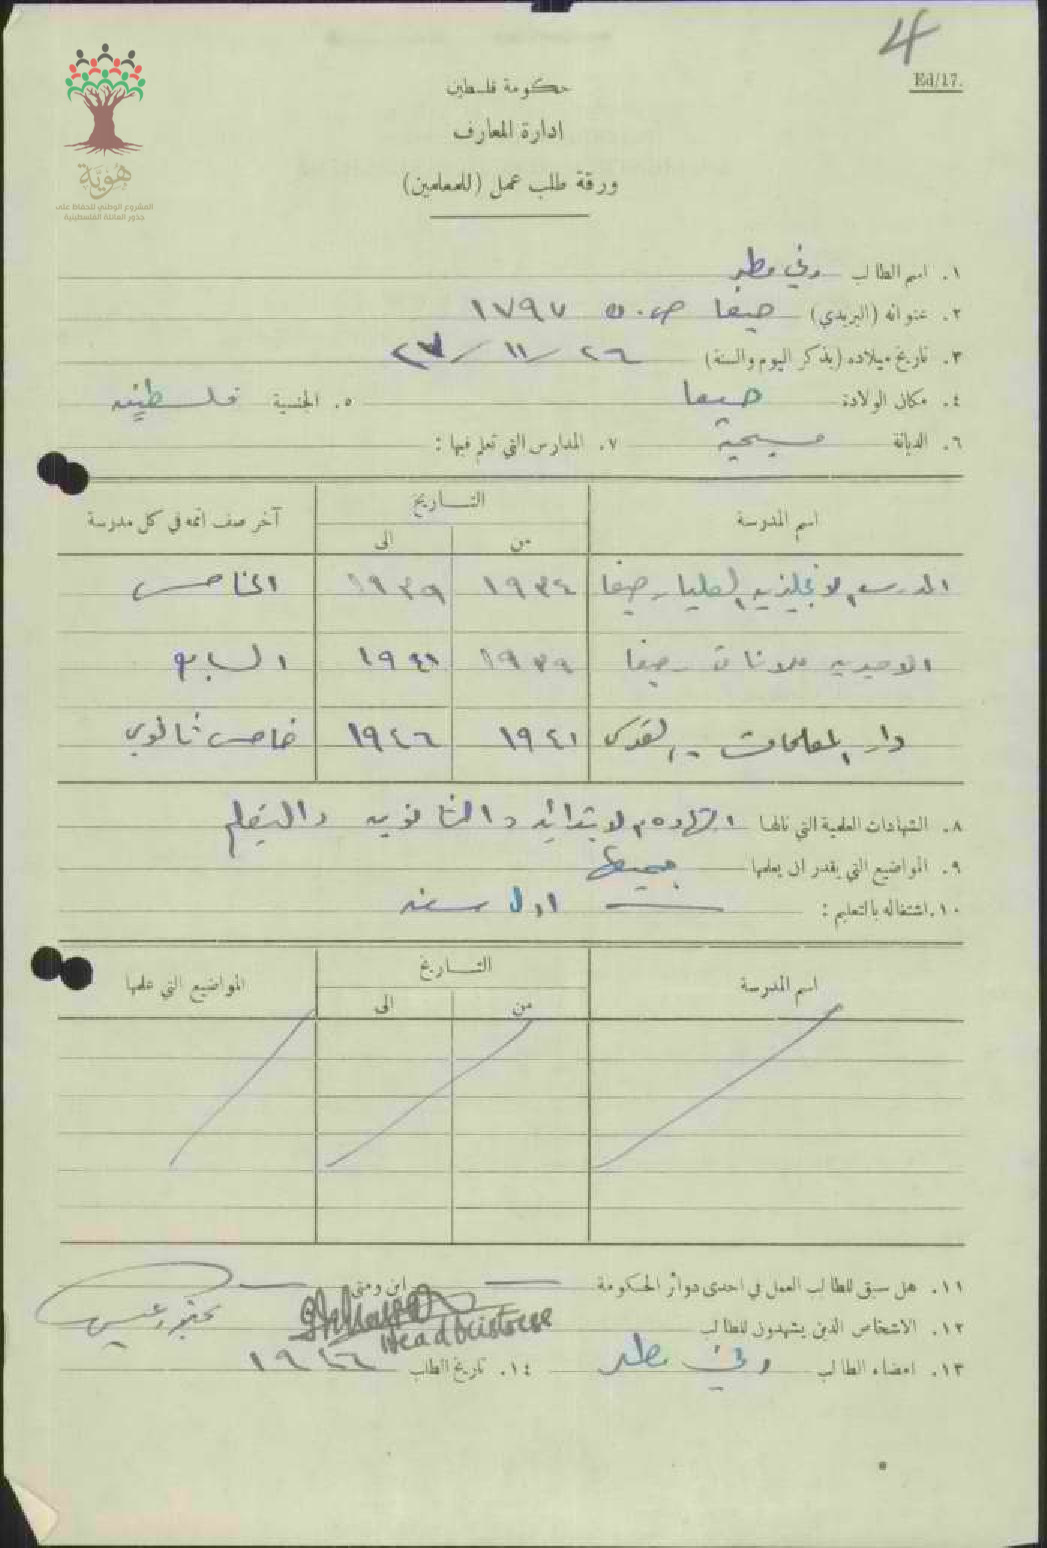 4
Ed/17.
هُوِيَّة
المشروع الوطني للحفاظ على
جذور العائلة الفلسطينية
حكومة فلسطين
ادارة المعارف
ورقة طلب عمل (للمعلمين)
١. اسم الطالب مطر
٢. عنوانه (البريدي) حيفا ص.ب ١٧٩٧
٣. تاريخ ميلاده (بذكر اليوم والسنة) ٢٦ / ١١ / ٢٧
٤. مكان الولادة حيفا ٥. الجنسية فلسطينيه
٦. الديانة مسيحية ٧. المدارس التي تعلم فيها :
اسم المدرسة التــاريخ آخر صف اتمه في كل مدرسة
من الى
المدرسه الانجليزيه العليا حيفا ١٩٣٤ ١٩٣٩ الخامس
الاميريه للاناث حيفا ١٩٣٩ ١٩٤١ السابع
دار المعلمات القدس ١٩٤١ ١٩٤٦ خامس ثانوي
٨. الشهادات العلمية التي نالها الابتدائيه والثانويه والتعليم
٩. المواضيع التي يقدر ان يعلمها جميعها
١٠. اشتغاله بالتعليم : اول سنه
اسم المدرسة التــاريخ المواضيع التي علمها
من الى
١١. هل سبق للطالب العمل في احدى دوائر الحكومة ابن ومتى
١٢. الاشخاص الذين يشهدون للطالب Headmistress
١٣. امضاء الطالب مطر ١٤. تاريخ الطلب ١٩٤٦